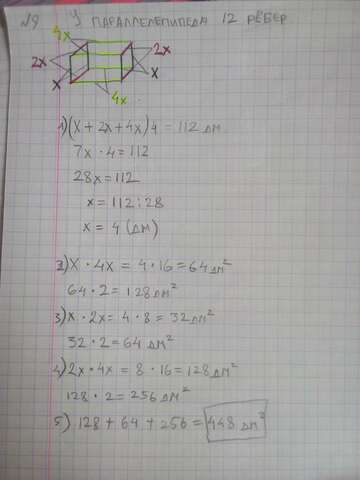 №9 У ПАРАЛЛЕЛЕПИПЕДА 12 РЁБЕР.
4x
2x 2x
x x
4x
1) (x + 2x + 4x) 4 = 112 дм
7x · 4 = 112
28x = 112
x = 112 : 28
x = 4 (дм)
2) x · 4x = 4 · 16 = 64 дм²
64 · 2 = 128 дм²
3) x · 2x = 4 · 8 = 32 дм²
32 · 2 = 64 дм²
4) 2x · 4x = 8 · 16 = 128 дм²
128 · 2 = 256 дм²
5) 128 + 64 + 256 = 448 дм²